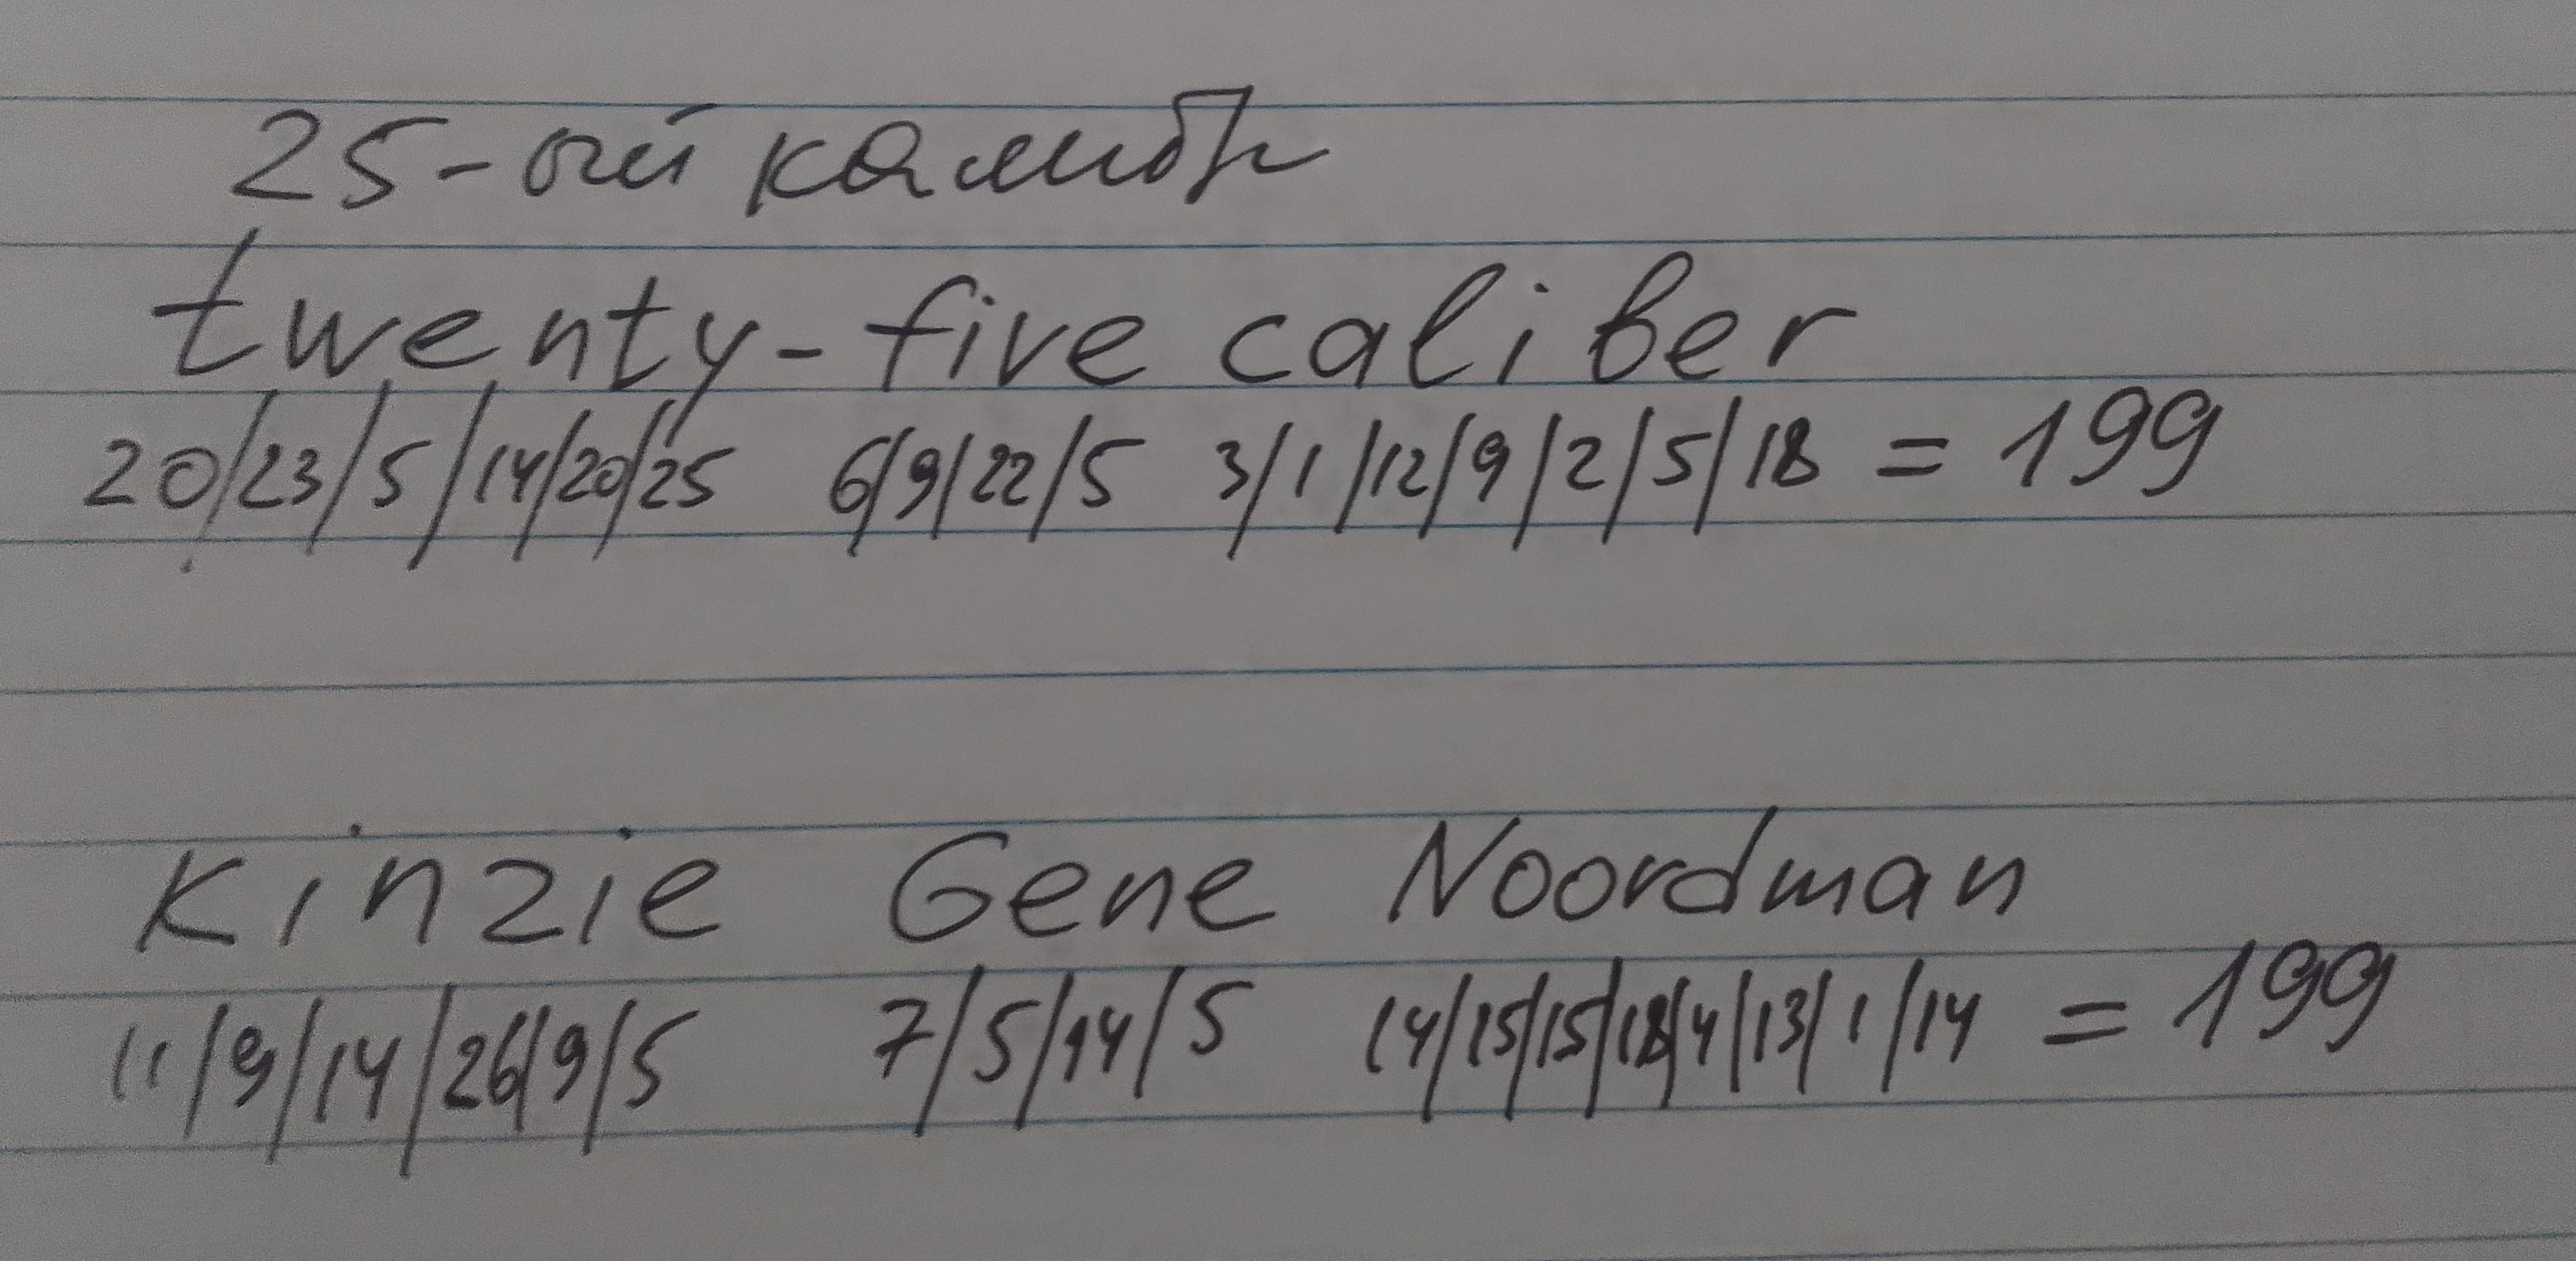 25-ый калибр
twenty-five caliber
20/23/5/14/20/25 6/9/22/5 3/1/12/9/2/5/18 = 199
Kinzie Gene Noordman
11/9/14/26/9/5 7/5/14/5 14/15/15/18/4/13/1/14 = 199